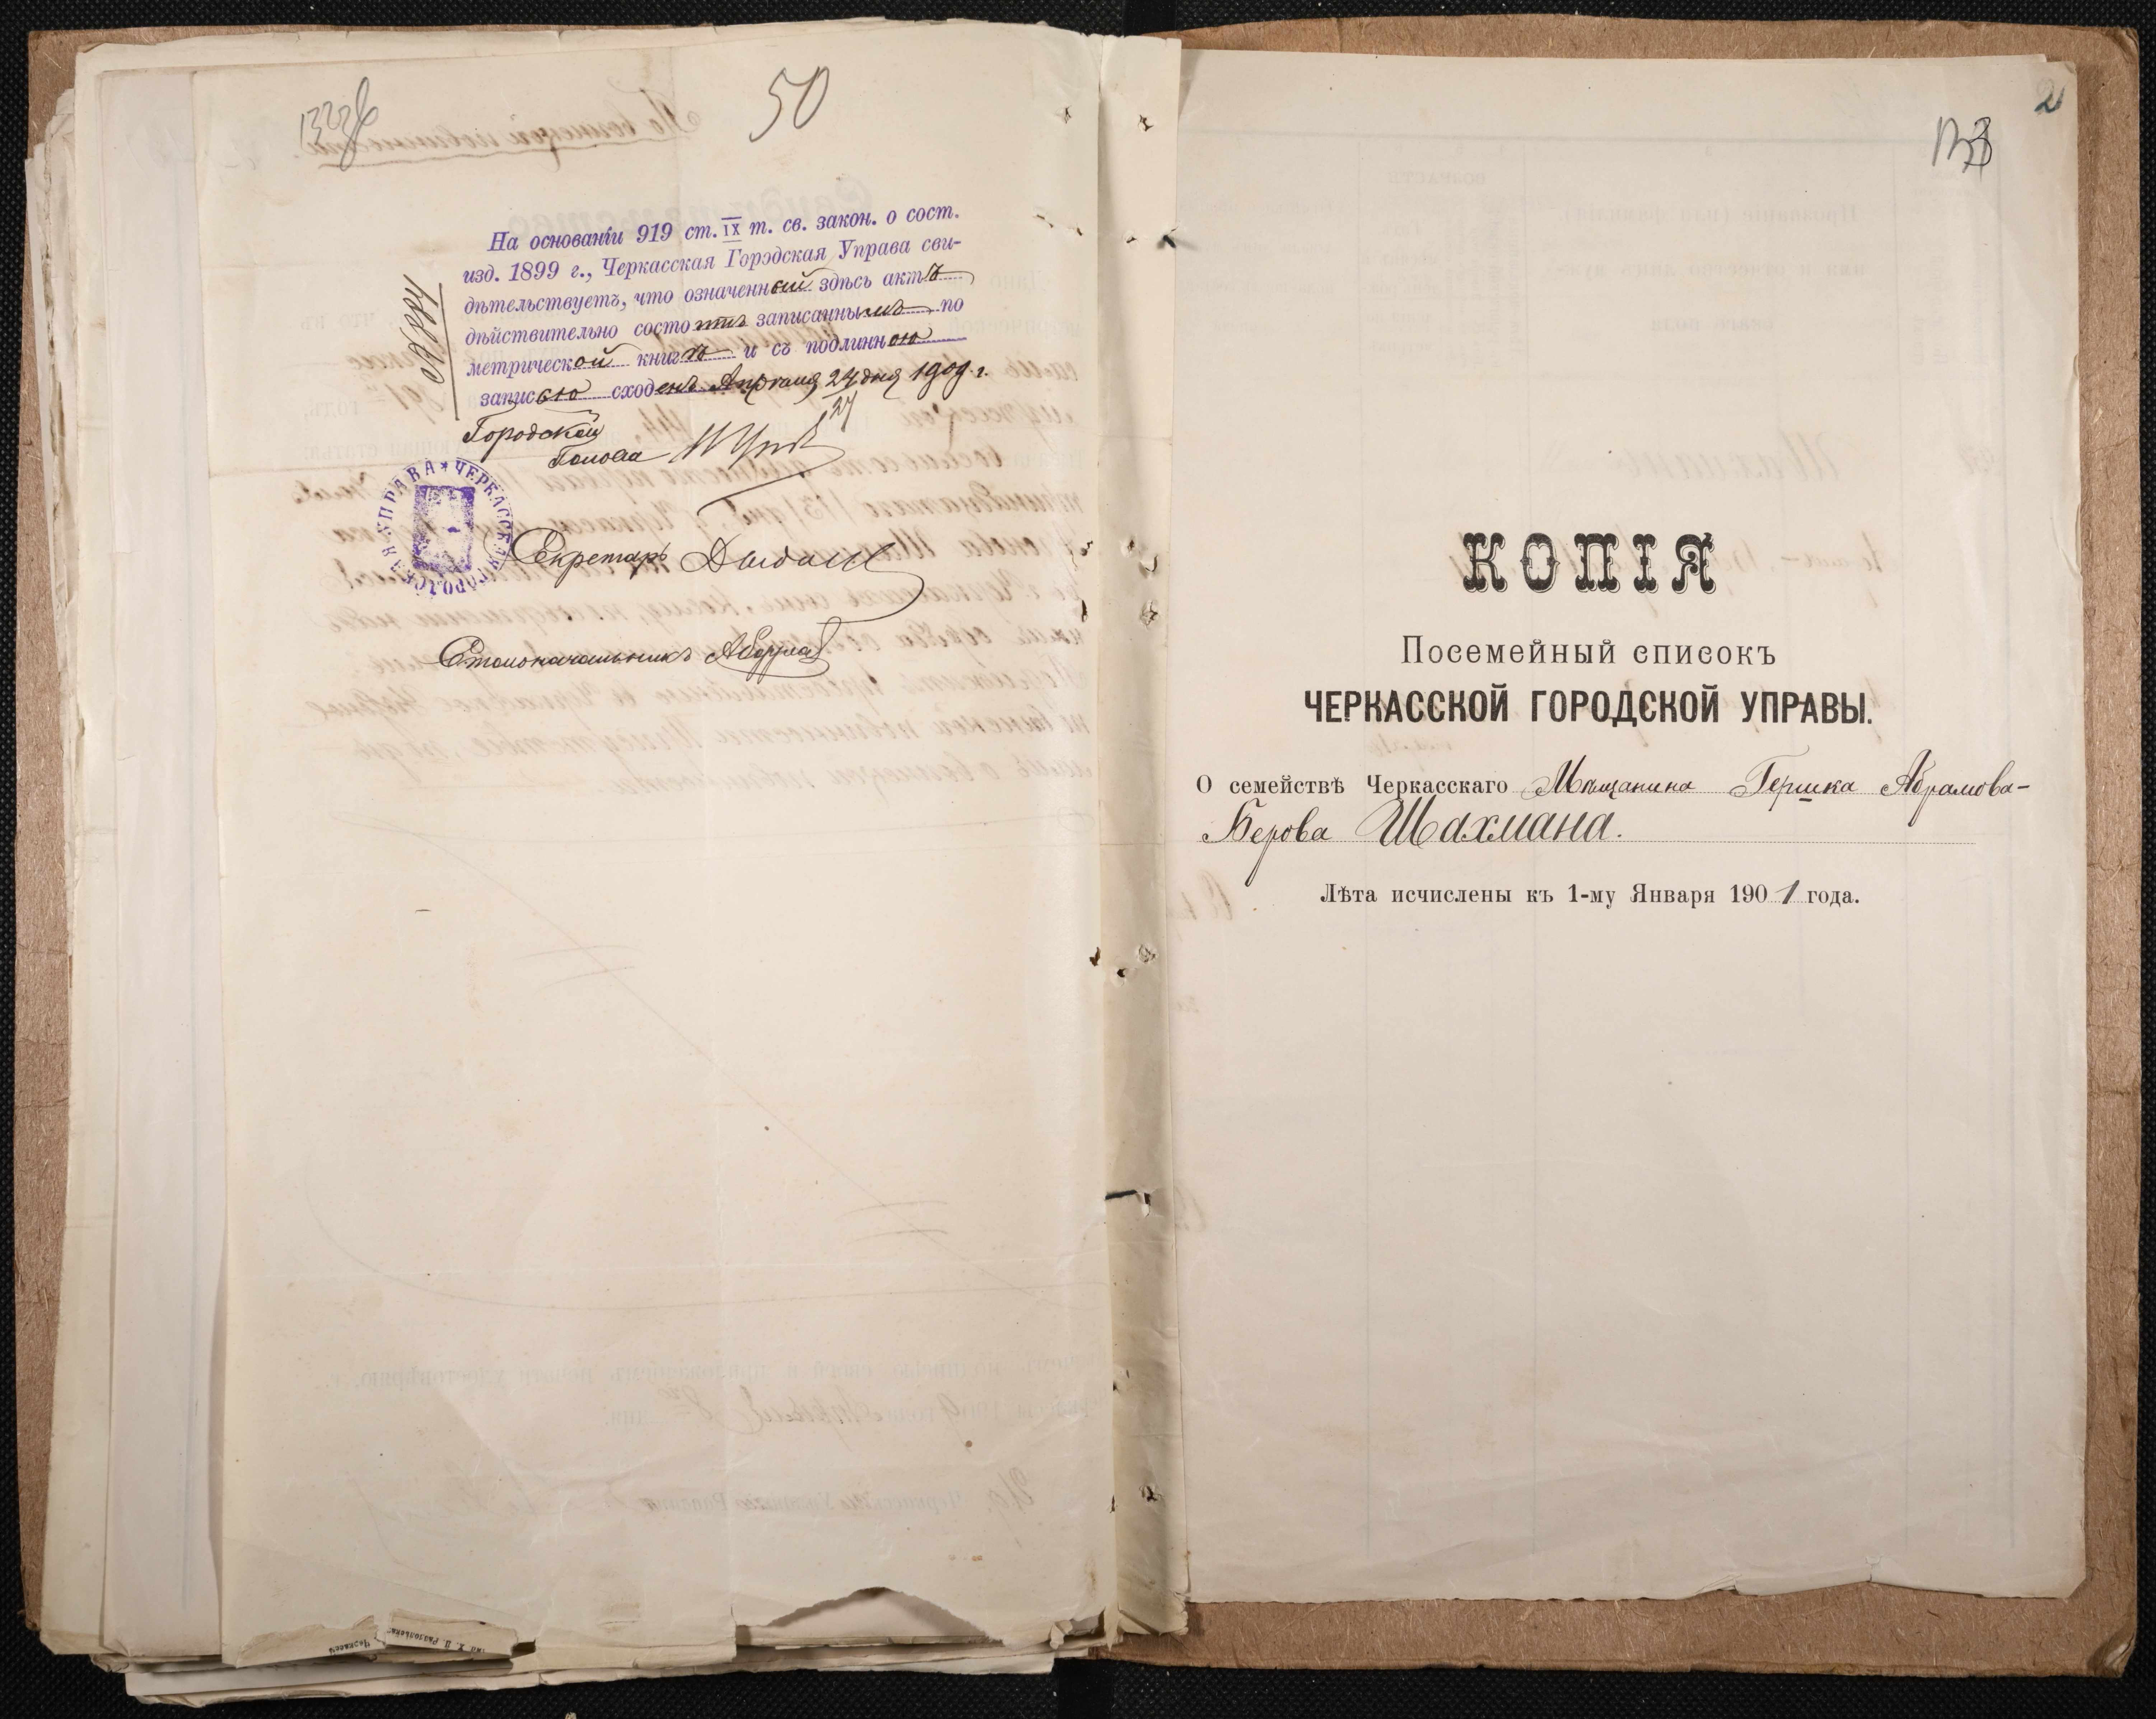 50
На основаніи 919 ст. IX т. св. закон. о сост.
изд. 1899 г., Черкасская Городская Управа сви-
дѣтельствуетъ, что означенный здѣсь актъ
дѣйствительно состоитъ записаннымъ по
метрической книгѣ и съ подлинною
записью сходенъ Апрѣля 24 дня 1909 г.
Городской
Голова
ЧЕРКАССКАЯ ГОРОДСКАЯ УПРАВА
Секретарь
Столоначальникъ
2
КОПІЯ
Посемейный списокъ
ЧЕРКАССКОЙ ГОРОДСКОЙ УПРАВЫ.
О семействѣ Черкасскаго Мѣщанина Гершка Абрамова-
Берова Шахмана.
Лѣта исчислены къ 1-му Января 1901 года.